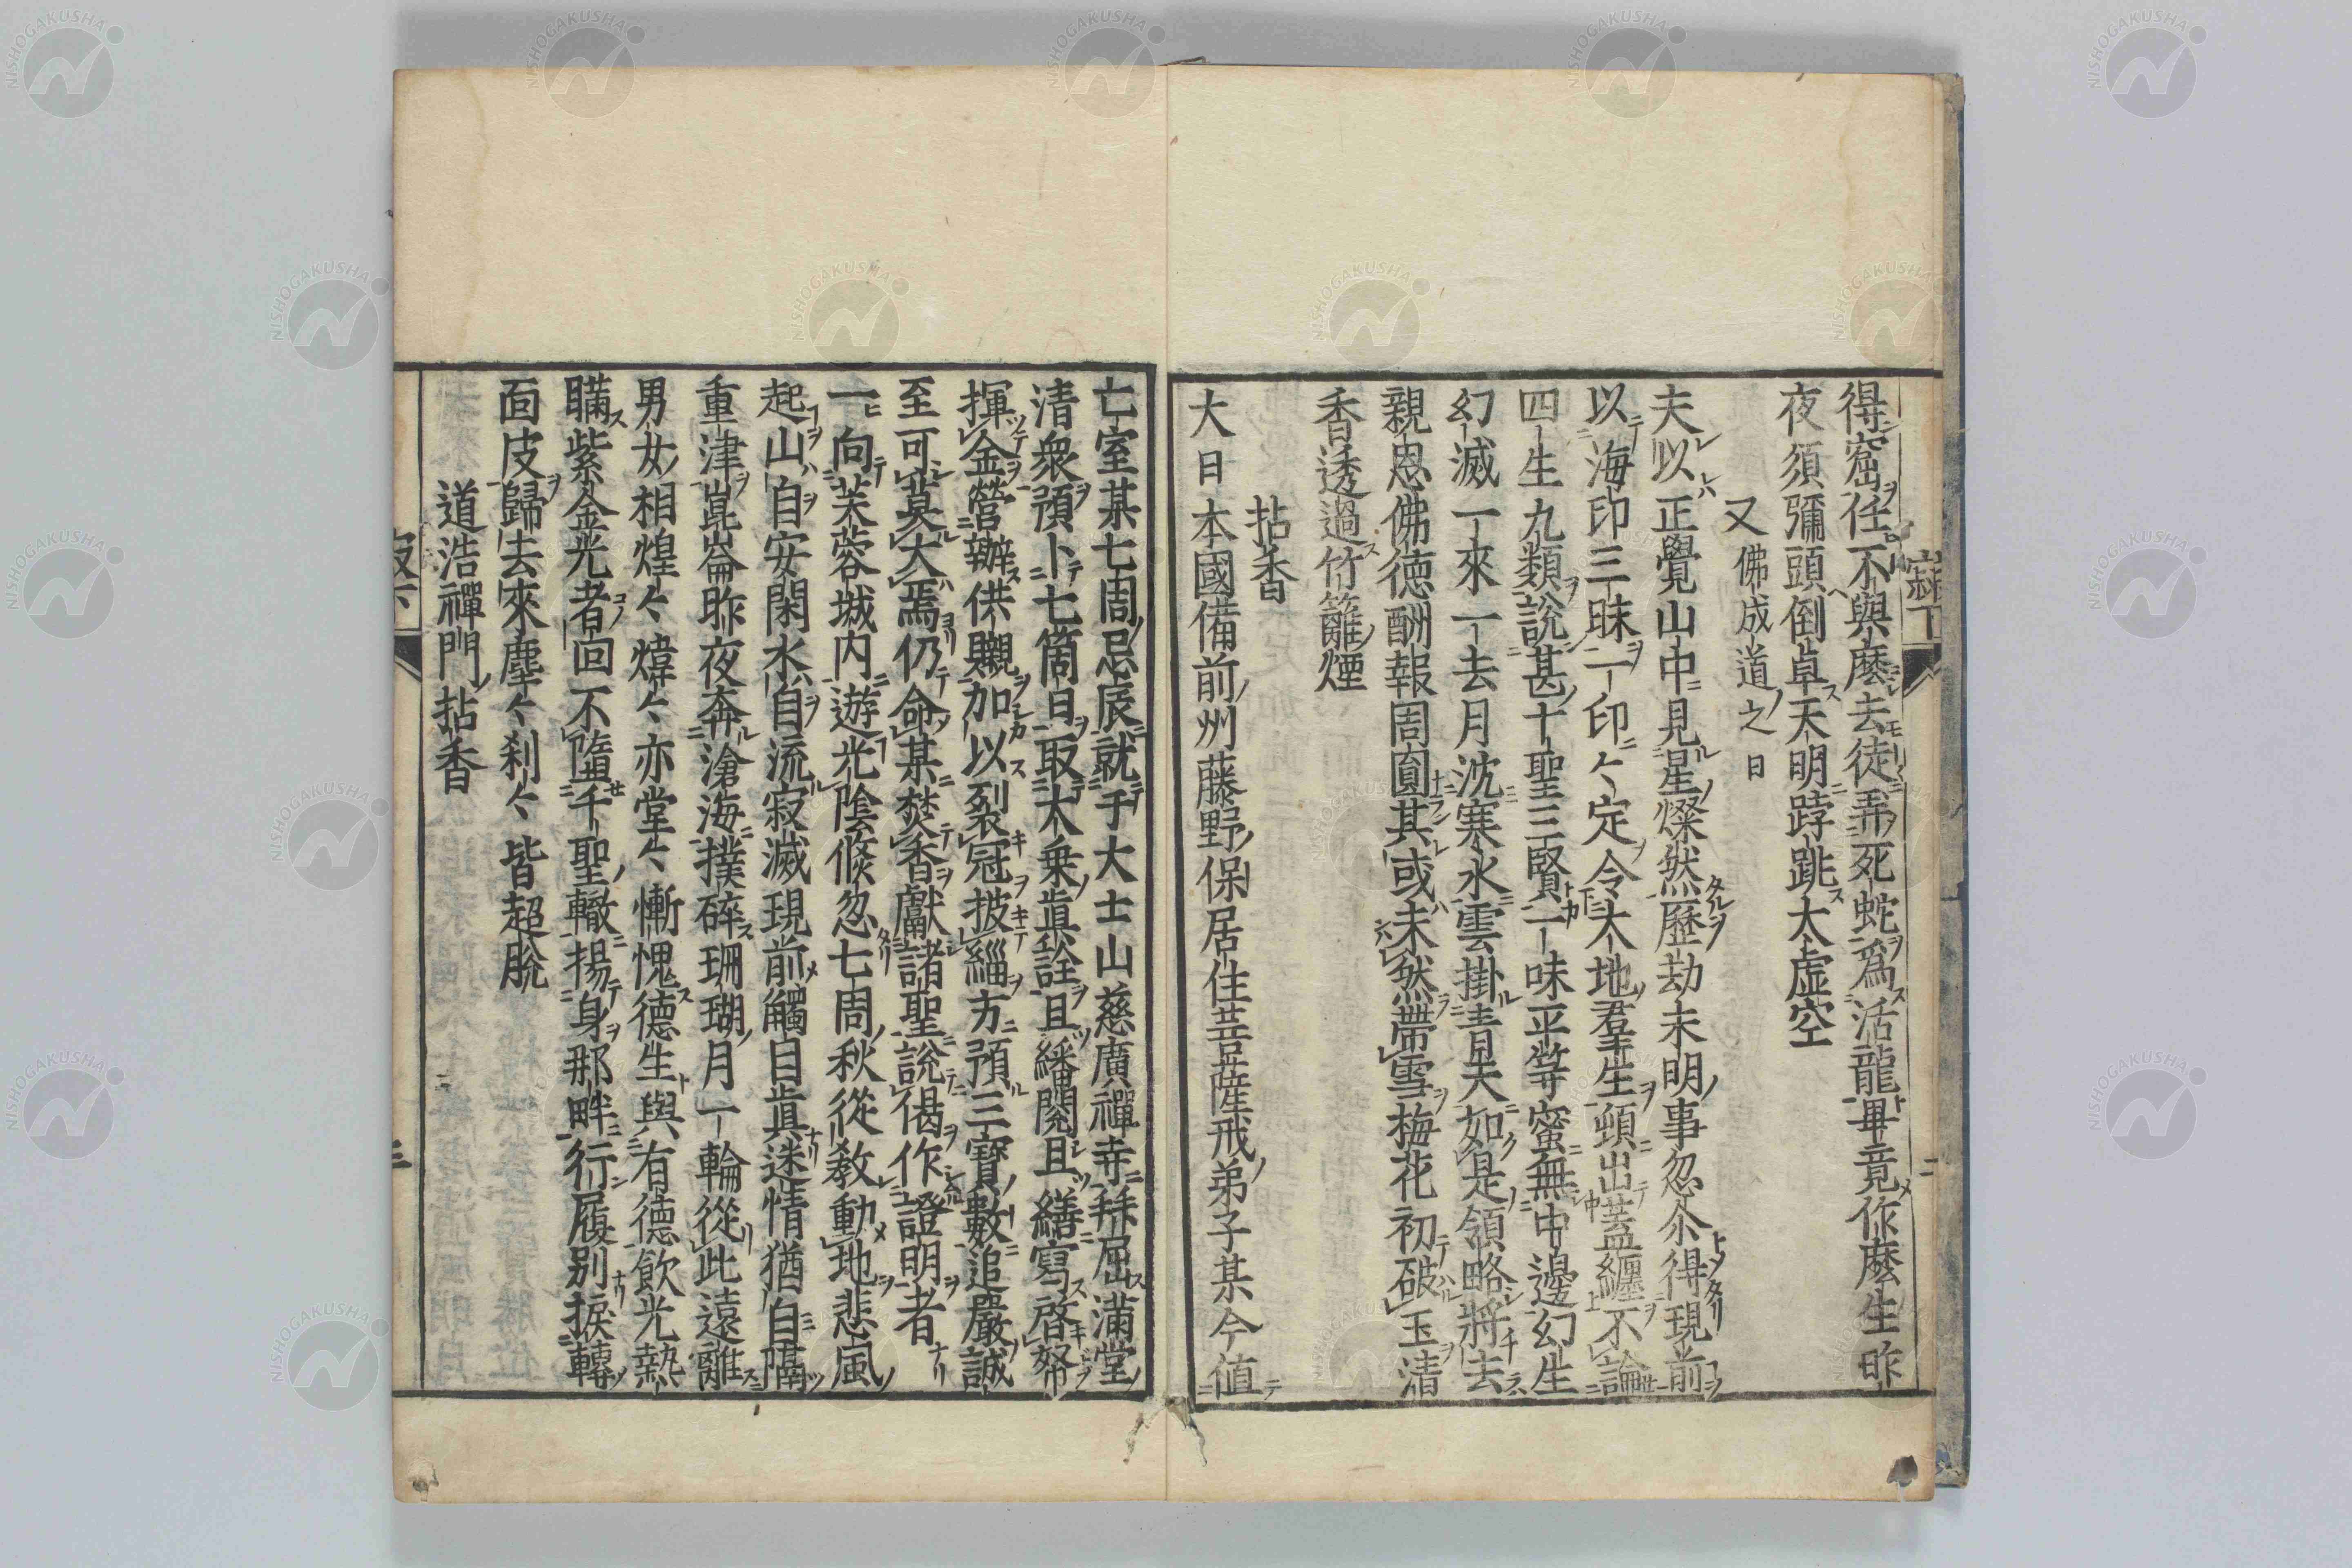 得窟任不與麼去徒弄死蛇爲活龍畢竟作麼生昨
夜須彌頭倒卓天明踍跳大虛空
又佛成道之日
夫以正覺山中見星燦然歷劫未明事忽尒得現前
以海印三昧一印々定令大地羣生頓出蓋纏不論
四生九類說甚十聖三賢一味平等蜜無中邊幻生
幻滅一來一去月沈寒水雲掛青天如是領略將去
親恩佛德酬報周圓其或未然帶雪梅花初破玉清
香透過竹籬煙
拈香
大日本國備前州藤野保居住菩薩戒弟子某今值
亡室某七周忌辰就于大士山慈廣禪寺拜屈滿堂
清衆預卜七箇日取大乗眞詮且繙閱且繕寫啓幣
揮金營辦供𫎪加以裂冠披緇方預三寶數追嚴誠
至可莫大焉仍命某焚香獻諸聖說偈作證明者
一向芙蓉城内遊光陰倐忽七周秋從敎動地悲風
起山自安閑水自流寂滅現前觸目眞迷情猶自隔
重津崑崙昨夜奔滄海撲碎珊瑚月一輪從此遠離
男女相煌々煒々亦堂々慚愧德生與有德飮光熱
瞞紫金光者回不墮千聖轍揚身那畔行履別捩轉
面皮歸去來塵々刹々皆超脫
道浩禪門拈香
寂下
二
三
NISHOGAKUSHA